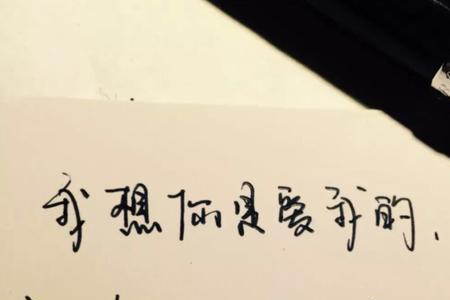 我想你是爱我的，